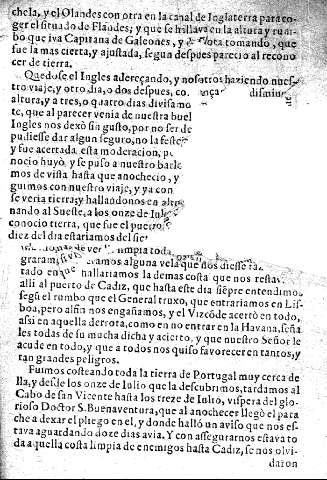 chela, y el Olandes con otra en la canal de Inglaterra para co-
ger el situado de Flãdes; y que se hallava en la altura y rum-
bo que iva Capitana de Galeones, y derrota tomando, que
fue la mas cierta, y ajustada, segun despues pareciò al recono
cer de tierra.
Quedose el Ingles adereçando, y nosotros haziendo nues-
tro viaje, y otro dia, o dos despues, co
altura, y a tres, o quatro dias divisamo
te, que al parecer venia de nuestra buel
Ingles nos dexò sin gusto, por no ser de
pudiesse dar algun seguro, no la feste
y fue acertada esta moderacion, p
nociò huyò, y se puso a nuestro barlo
mos de vista hasta que anocheciò, y
guimos con nuestro viaje, y ya con
se veria tierra; y hallandonos en altu
nando al Sueste, a los onze de Iulio
conociò tierra, que fue el puerto
diez del dia estariamos del sie
de ver limpia toda
graram; si viera ramos alguna vela que nos diesse raz
tado en que hallariamos la demas costa que nos restav
alli al puerto de Cadiz, que hasta este dia siẽpre entendimo
segũ el rumbo que el General truxo, que entrariamos en Lis-
boa, pero alfin nos engañamos, y el Vizcõde acertò en todo,
assi en aquella derrota, como en no entrar en la Havana, seña
les todas de su mucha dicha y acierto, y que nuestro Señor le
acude en todo, y que a todos nos quiso favorecer en tantos, y
tan grandes peligros.
Fuimos costeando toda la tierra de Portugal muy cerca de
lla, y desde los onze de Iulio que la descubrimos, tardamos al
Cabo de san Vicente hasta los treze de Iulio, vispera del glo-
rioso Doctor S. Buenaventura, que al anochecer llegò el para
che a dexar el pliego en el, y donde hallò un aviso que nos es-
tava aguardando doze dias avia. Y con assegurarnos estava to
da aquella costa limpia de enemigos hasta Cadiz, se nos olvi-
daron